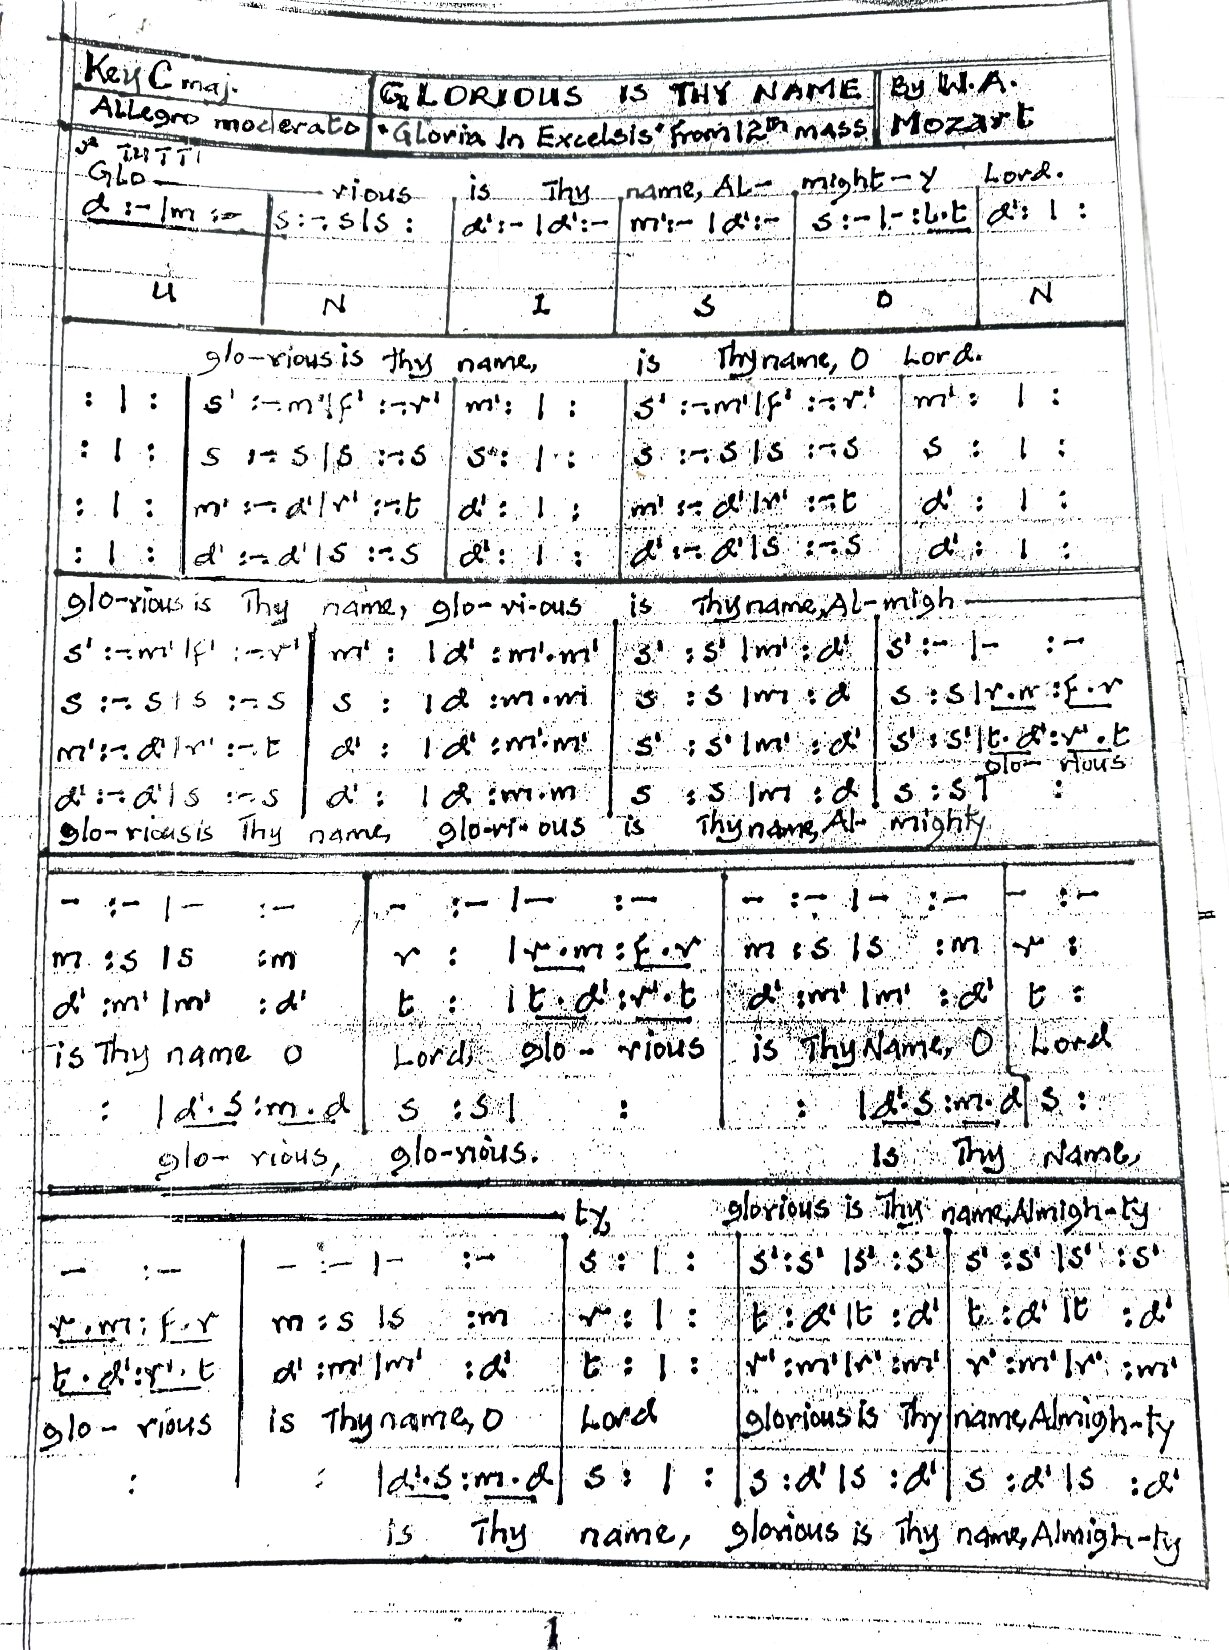 Key C maj. GLORIOUS IS THY NAME By W.A.
Allegro moderato "Gloria In Excelsis" from 12th mass Mozart
TUTTI
GLO— rious is Thy name, AL- might-y Lord.
d :- |m :- | s :-. s|s : | d' :- |d' :- | m' :- |d' :- | s :- |- :l.t | d' : | :
U N I S O N
glo-rious is thy name, is Thy name, O Lord.
: | : | s' :-. m'|f' :-. r' | m' : | : | s' :-. m'|f' :-. r' | m' : | :
: | : | s :-. s|s :-. s | s : | : | s :-. s|s :-. s | s : | :
: | : | m' :-. d'|r' :-. t | d' : | : | m' :-. d'|r' :-. t | d' : | :
: | : | d' :-. d'|s :-. s | d' : | : | d' :-. d'|s :-. s | d' : | :
glo-rious is Thy name, glo-ri-ous is Thy name, Al-migh—
s' :-. m'|f' :-. r' | m' : |d' :m'.m' | s' :s' |m' :d' | s' :- |- :-
s :-. s|s :-. s | s : |d :m.m | s :s |m :d | s :s|r.m :f.r
m' :-. d'|r' :-. t | d' : |d' :m'.m' | s' :s' |m' :d' | s' :s'|t.d' :r'.t
glo- rious
d' :-. d'|s :-. s | d' : |d :m.m | s :s |m :d | s :s| :
glo-rious is Thy name, glo-ri-ous is Thy name, Al- mighty
- :- |- :- | - :- |- :- | - :- |- :- | - :-
m :s |s :m | r : |r.m :f.r | m :s |s :m | r :
d' :m' |m' :d' | t : |t.d' :r'.t | d' :m' |m' :d' | t :
is Thy name O Lord, glo- rious is Thy Name, O Lord
: |d'.s :m.d | s :s| : | : |d'.s :m.d | s :
glo- rious, glo-rious. Is Thy Name,
— ty, glorious is Thy name, Almigh-ty
- :- | - :- |- :- | s : | : | s' :s' |s' :s' | s' :s' |s' :s'
r.m :f.r | m :s |s :m | r : | : | t :d' |t :d' | t :d' |t :d'
t.d' :r'.t | d' :m' |m' :d' | t : | : | r' :m' |r' :m' | r' :m' |r' :m'
glo- rious is Thy name, O Lord glorious is Thy name, Almigh-ty
: | : |d'.s :m.d | s : | : | s :d' |s :d' | s :d' |s :d'
is Thy name, glorious is Thy name, Almigh-ty
1